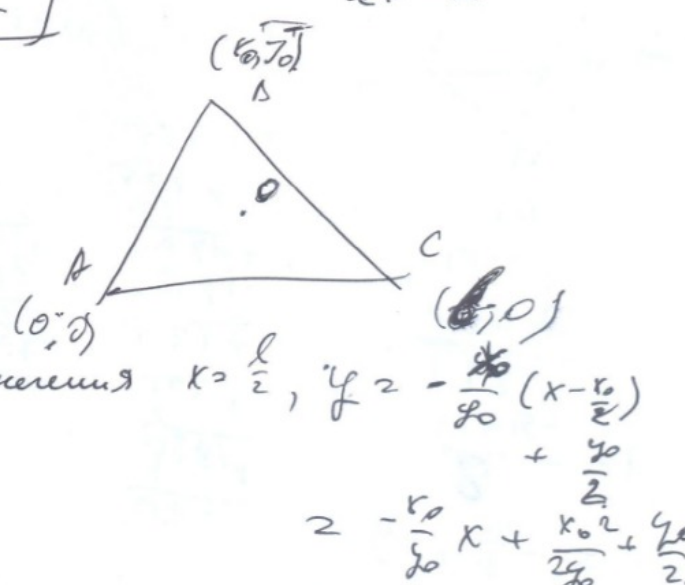 (x₀, y₀)
B
O
A
C
(0; 0)
(l, 0)
x = l/2, y = -x₀/y₀ (x - x₀/2)
+ y₀/2
= -x₀/y₀ x + x₀²/2y₀ + y₀/2